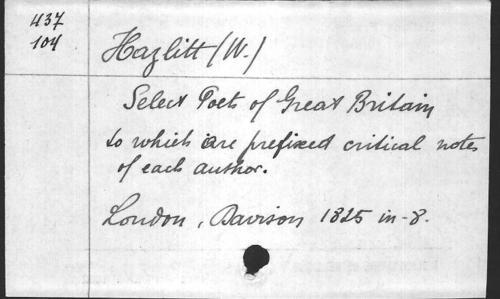 437
104
Hazlitt (W.)
Select Poets of Great Britain
to which are prefixed critical notes
of each author.
London, Davison 1825 in-8.